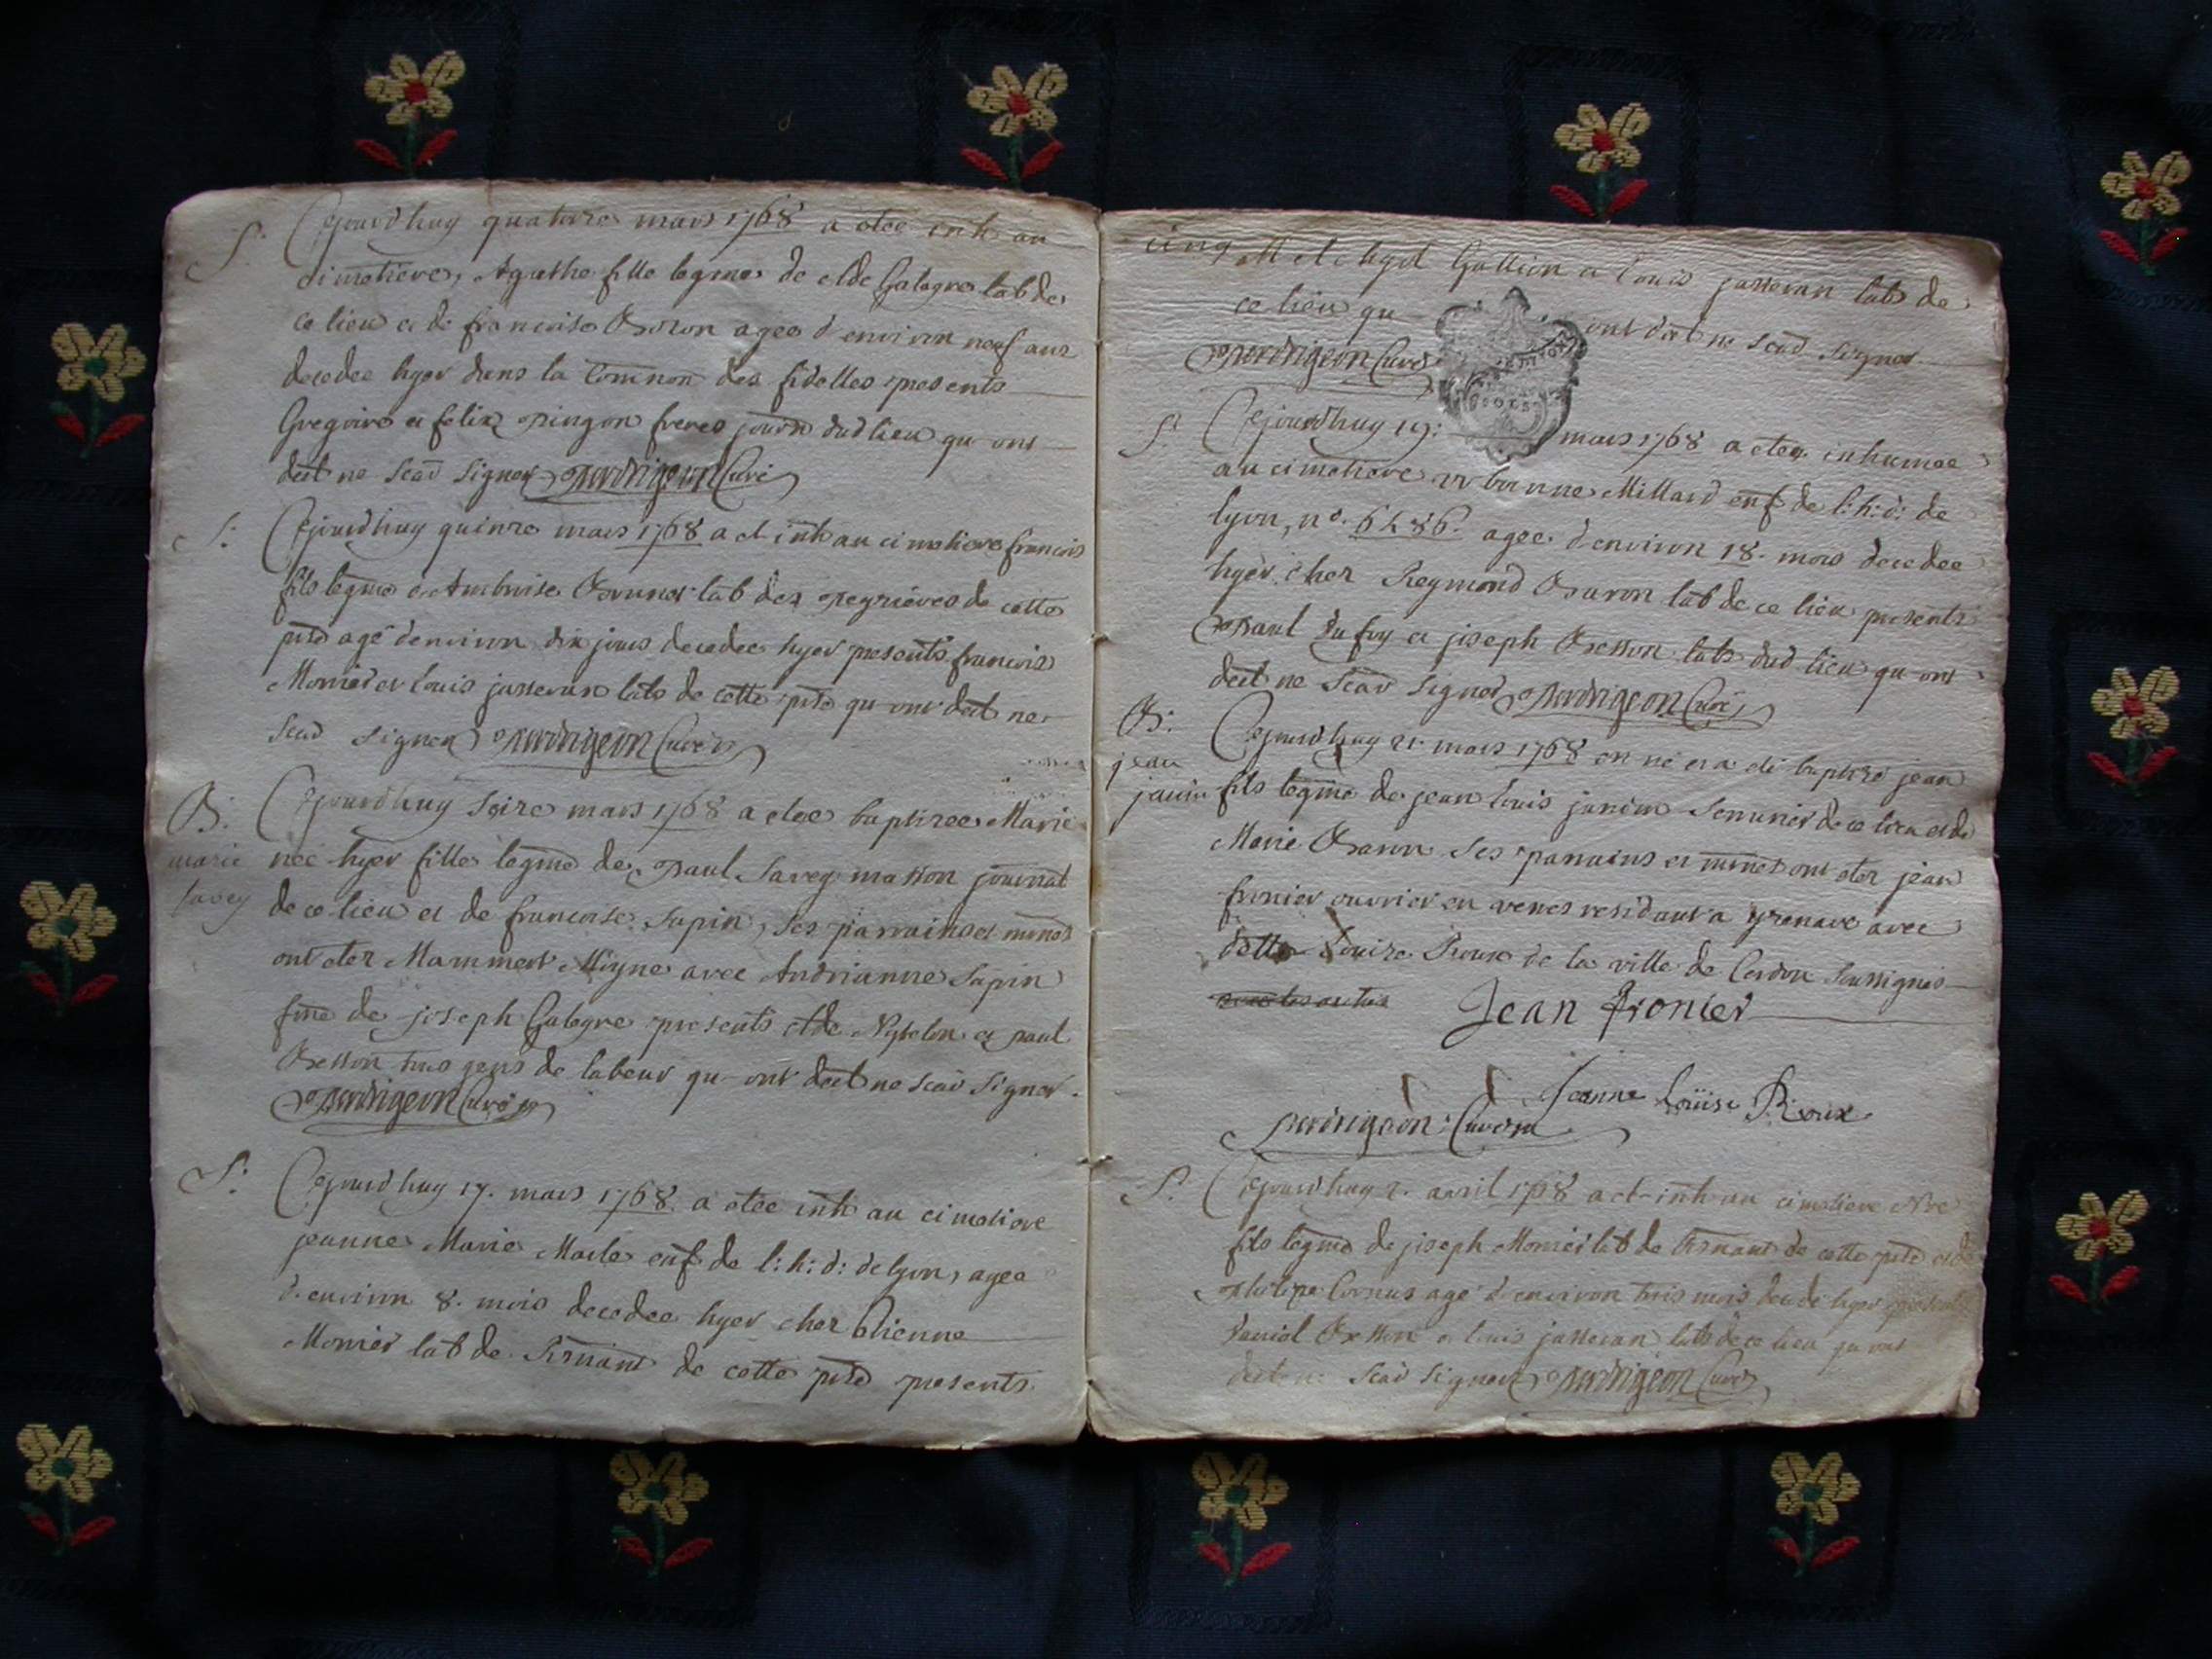 S. Cejourdhuy quatorze mars 1768 a etee inh au
cimetiere, Agathe fille legme de Galagre lab de
ce lieu et de francoise agee d'environ neuf ans
decedee hyer dans la Comnon des fidelles presents
Gregoire et felix pingon freres journ dud lieu qu ont
dit ne scav signer perdrigeon Curé
S. Cejourdhuy quinze mars 1768 a et inh au cimetiere francois
fils legme d'Ambroise lab des de cette
psse agé denviron dix jours decedee hyer presents francois
Monier et louis jasseran labs de cette psse qu ont dit ne
scav signer perdrigeon Curé
B. Cejourdhuy seize mars 1768 a etee baptizee Marie
marie
savey
née hyer fille legme de paul savey masson journal
de ce lieu et de francoise sapin, ses parrains et
ont eter Mammert Migne avec Andrianne sapin
fme de joseph Galagre presents et paul
Besson tous gens de labeur qu ont dit ne scav signer.
perdrigeon Curé
S. Cejourdhuy 17. mars 1768. a etee inh au cimetiere
jeanne Marie enf de l: h: d: de lyon, agee
d'environ 8. mois decedee hyer chez Etienne
Monier lab de de cette psse presents
cinq Gallien et louis jasseran labs de
ce lieu qu ont dit ne scav signer
perdrigeon Curé
S. Cejourdhuy 19: mars 1768 a etee inhumee
au cimetiere Millard enf de l: h: d: de
lyon, n°. agee d'environ 18. mois decedee
hyer chez Reymond Baron lab de ce lieu presents
paul dufoy et joseph Besson labs dud lieu qu ont
dit ne scav signer perdrigeon Curé
B. Cejourdhuy 21. mars 1768 en né et a eté baptizé jean
jean
janin
fils legme de jean louis janin de ce lieu et de
Marie Baron ses parrains et ont eter jean
fronier ouvrier en residant a avec
delle Louize Roux de la ville de Cerdon soussignés
Jean fronier
Jeanne Loüise Roux
perdrigeon: Curé
S. Cejourdhuy 2. avril 1768 a et inh au cimetiere
fils legme de joseph Monier lab de de cette psse et de
philipe Cornus agé d'environ trois mois decedé hyer presents
Daniel Besson et louis jasseran labs de ce lieu qu ont
dit ne scav signer perdrigeon Curé